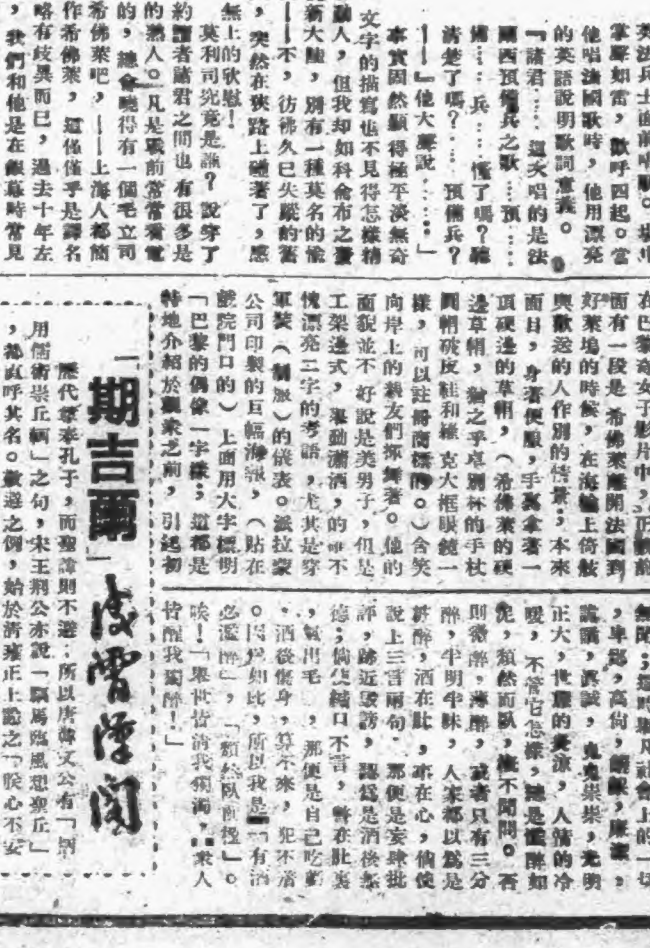 英法兵士面前唱歌。場中
掌聲如雷，歡呼四起。當
他唱法國歌時，他用漂亮
的英語說明歌詞意義。
『諸君……這支唱的是法
國西預備兵之歌…預……
備……兵……懂了嗎？聽
清楚了嗎？……預備兵？
——』他大聲說……。」
事實固然顯得極平淡無奇
文字的描寫也不見得怎樣精
動人，但我却如科侖布之發
新大陸，別有一種莫名的愉
——不，彷彿久已失蹤的舊
，突然在狹路上碰著了，感
無上的欣慰！
莫利司究竟是誰？說穿了
約讀者諸君之間也有很多是
的熟人。凡是戰前常常看電
的，總會曉得有一個毛立司
希佛萊吧，——上海人都簡
作希佛萊，這僅僅乎是譯名
略有歧異而已，過去十年左
，我們和他是在銀幕時常見
在巴黎奇女子影片中，正戲前
面有一段是希佛萊離開法國到
好萊塢的時候，在海輪上倚舷
與歡送的人作別的情景，本來
面目，身著便服，手裏拿著一
頂硬邊的草帽，（希佛萊的硬
邊草帽，猶之乎卓別林的手杖
圓帽破皮鞋和羅克大框眼鏡一
樣，可以註冊商標的。）含笑
向岸上的親友們揮舞著。他的
面貌並不好說是美男子，但是
工架邊式，舉動瀟洒，的確不
愧漂亮二字的考語，尤其是穿
軍裝（制服）的儀表。派拉蒙
公司印製的巨幅海報，（貼在
戲院門口的）上面用大字標明
「巴黎的偶像」字樣，這都是
特地介紹於觀衆之前，引起初
無聞；這時舉凡社會上的一切
，卑鄙，高尚，齷齪，廉潔，
詭譎，真誠，鬼鬼祟祟，光明
正大，世態的炎涼，人情的冷
暖，不管它怎樣，總是爛醉如
泥，頹然而臥，概不聞問。否
則微醉，薄醉，或者只有三分
醉，半明半昧，人家都以爲是
醉，酒在肚，事在心，倘使
說上三言兩句，那便是妄肆批
評，跡近毀謗，認爲是酒後無
德；倘使緘口不言，悶在肚裏
，氣出毛，那便是自己吃虧
，酒後傷身，算不來，犯不着
。因爲如比，所以我是「有酒
必濫醉」，「頹然臥前楹」。
唉！「舉世皆清我獨濁，衆人
皆醒我獨醉！」
「期吉爾」
歷代尊奉孔子，而聖諱則不避；所以唐韓文公有「
用儒術崇丘軻」之句，宋王荆公亦說「驅馬臨風想聖丘」
，都直呼其名。敬避之例，始於清雍正上諭之「朕心不安